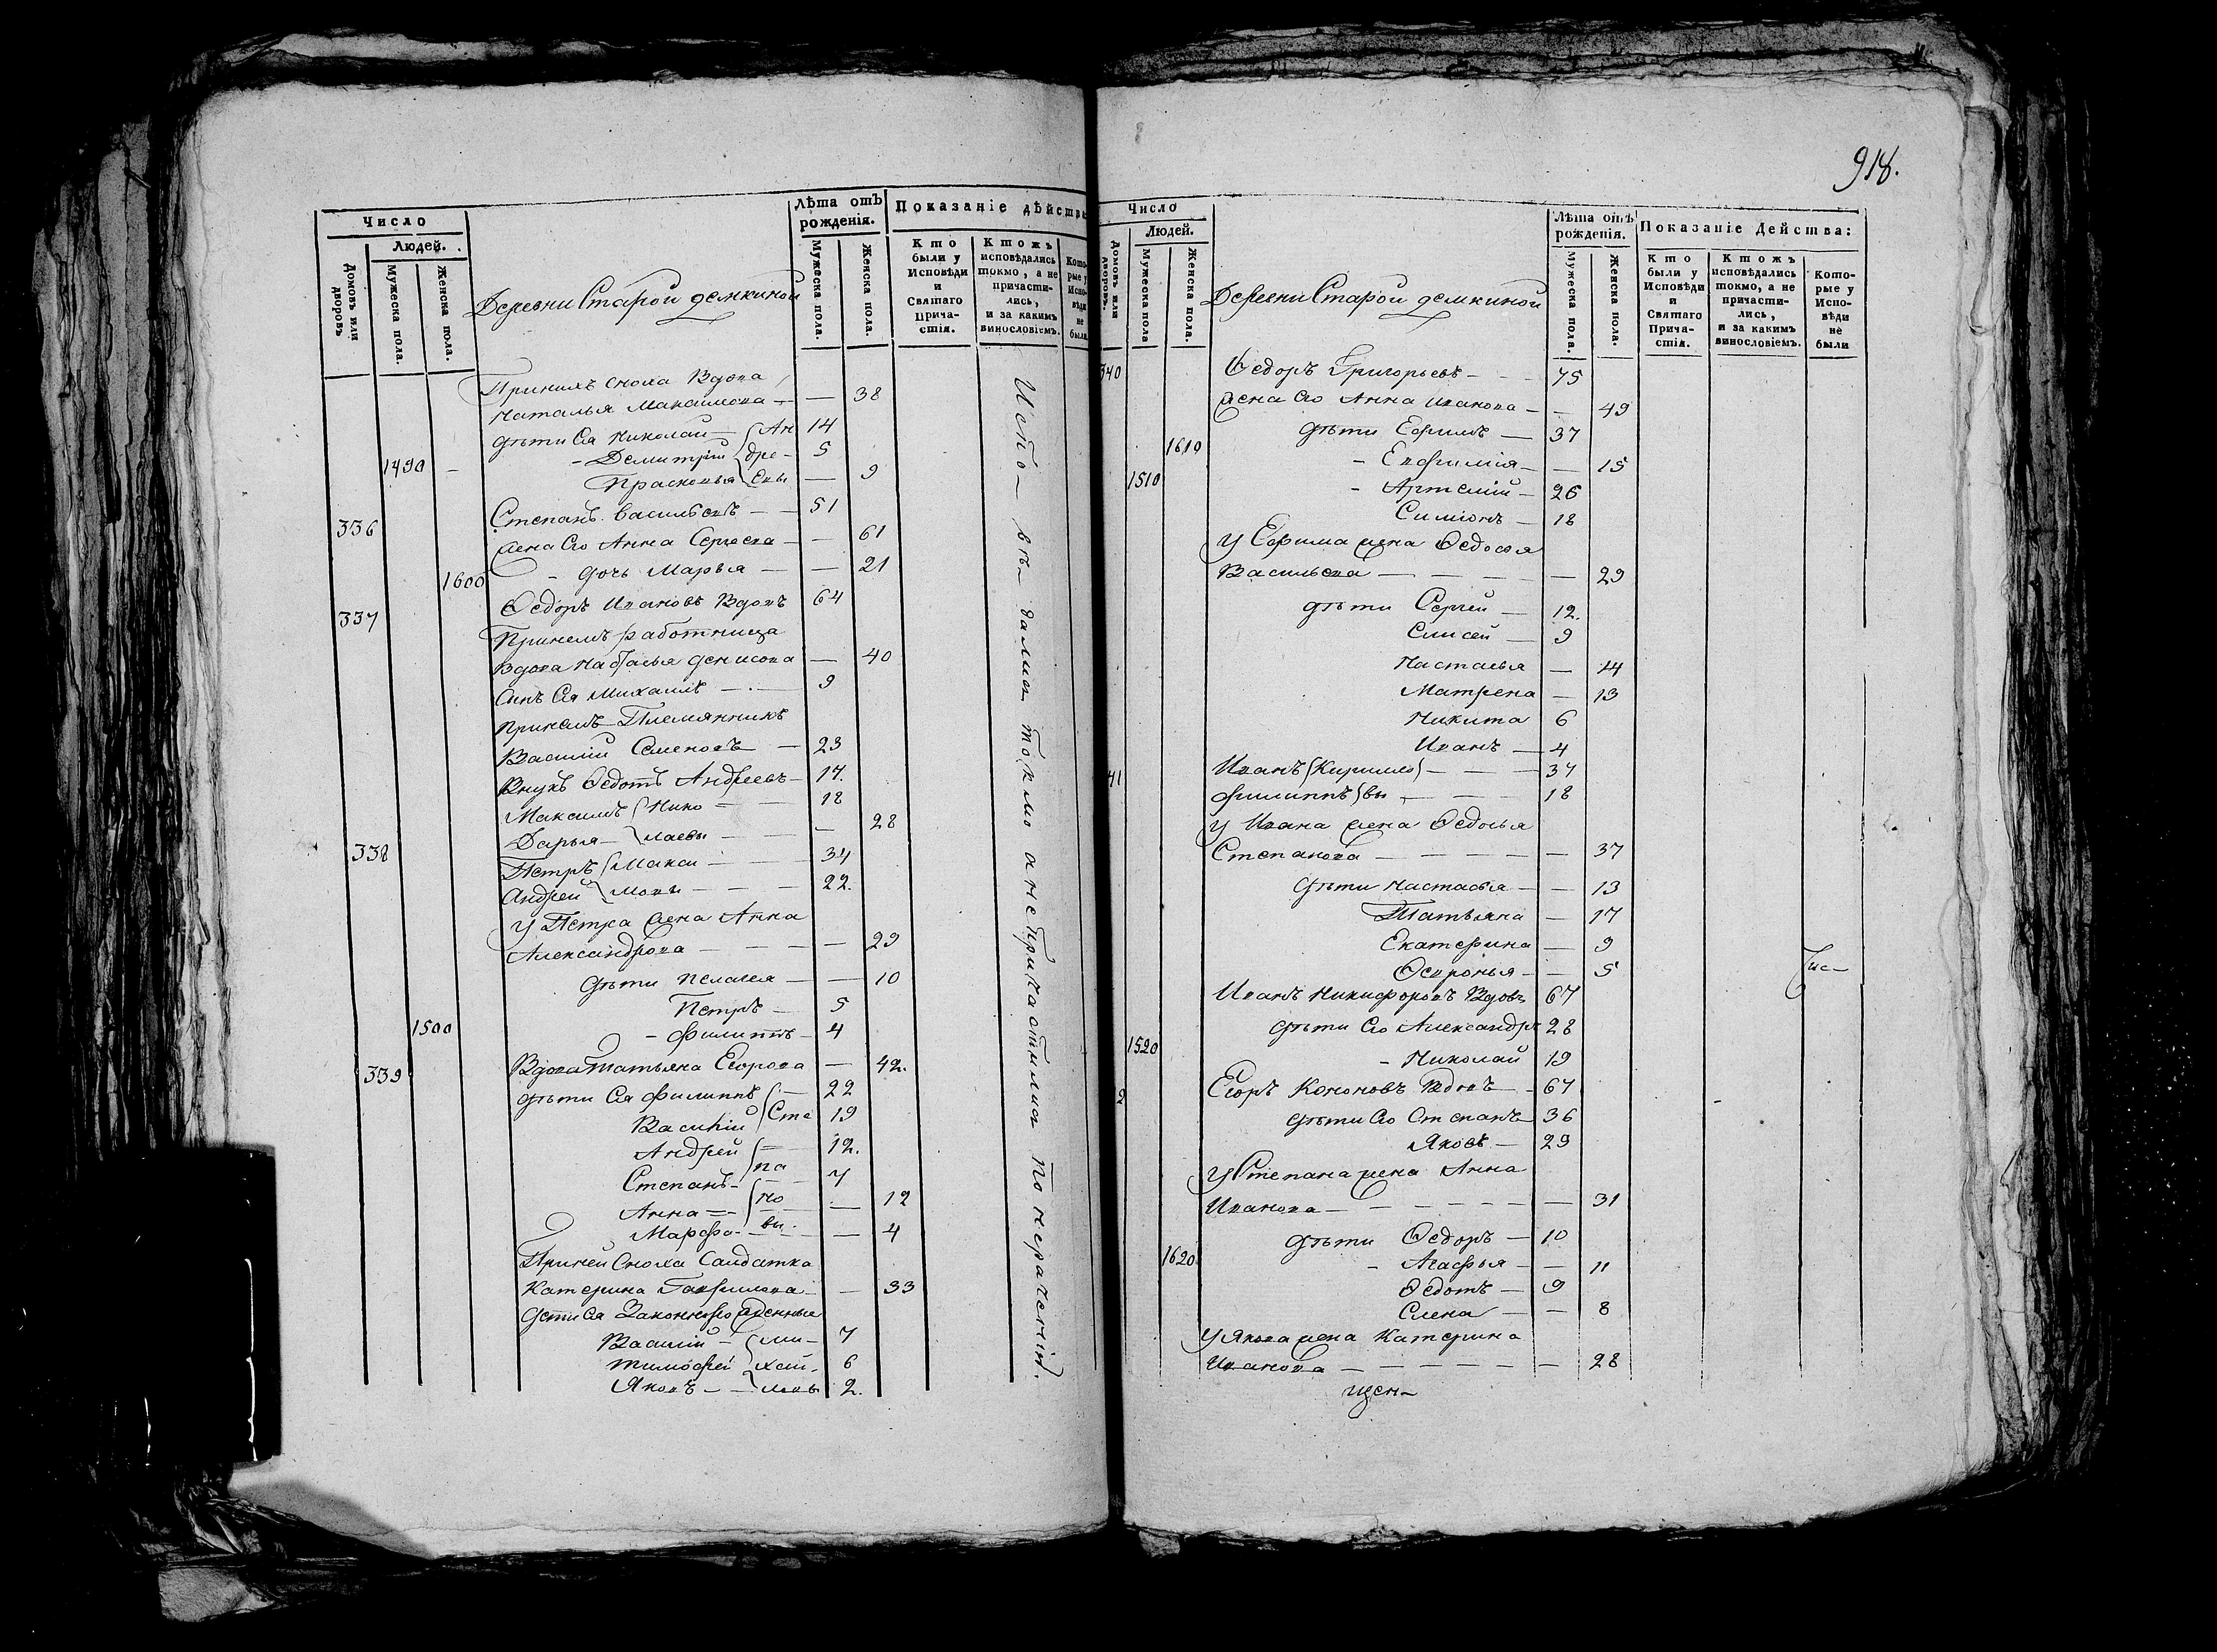 918.
Число
Людей.
Домовъ или дворовъ
Мужеска пола.
Женска пола.
Деревни Старой демкиной
Лѣта отъ рожденія.
Мужеска пола.
Женска пола.
Показаніе дѣйства
Кто были у Исповѣди и Святаго Прича-стія.
Ктожъ исповѣдались токмо, а не причасти-лись, и за какимъ винословіемъ.
Кото-рые у Испо-вѣди не были
Принихъ сноха Вдова
Наталья Максимова — — 38
дѣти Ея Николай — { Ан 14
1490 — - Демитрій { дре - 5
Прасковья { Евы — 9
336 Степанъ Васильевъ — — 51
жена Его Анна Сергеева — — 61
1600 - дочь Марья — — 21
337 Ѳедоръ Ивановъ Вдовъ 64
Принемъ работница
Вдова Наталья денисова — 40
Сынъ Ея Михаилъ — 9
Принемъ Племянникъ
Василій Семеновъ — 23
Внукъ Ѳедотъ Андреевъ — 17.
Максимъ { Нико — — 18
Дарья — { лаевы — — — 28
338 Петръ { Макси — — 34
Андрей { мовы — — — 22.
У Петра жена Анна
Александрова — — — — 29
дѣти Пелагея — — 10
Петръ — 5
1500 - Филиппъ — 4
339 Вдова Татьяна Егорова — 42.
дѣти Ея Филиппъ { — 22
Василій { Сте 19
Андрей { — 12.
Степанъ - { па — 7
Анна — { но — — 12
Марфа - вы. — 4
Приней Сноха Салдатка
Катерина Гаврилова — — 33
дети Ея Законнорожденные
Василій - { ми - 7
Тимофей { хай - 6
Яковъ — — { ловы 2.
Испо- вѣ- дались токмо а не причастились по нерачению.
Число
Людей.
Домовъ или дворовъ.
Мужеска пола
Женска пола.
Деревни Старой демкиной
Лѣта отъ рожденія.
Мужеска пола.
Женска пола.
Показаніе Действа:
Кто были у Исповѣди и Святаго Прича-стія.
Ктожъ исповѣдались токмо, а не причасти-лись, и за какимъ винословіемъ.
Кото-рые у Испо-вѣди не были
340 Ѳедоръ Григорьевъ — — — 75
жена Его Анна Иванова — — 49
дѣти Ефимъ — 37
1610 - Евфимія — — 15
1510 - Артемій — 26
Симіонъ — 18
У Ефима жена Ѳедосья
Васильева — — — — — 29
дѣти Сергей — 12.
Елисей — 9
Настасья — 14
Матрена — 13
Никита 6
Иванъ — 4
41 Иванъ { Кирилло } — — — 37
Филиппъ } вы — — — 18
У Ивана жена Ѳедосья
Степанова — — — — — 37
дѣти Настасья — — 13
Татьяна — 17
Екатерина — 9
Ѳевронья — — 5
Иванъ Никифоровъ Вдовъ 67
дѣти Его Александръ 28
1520 - Николай 19
2 Егоръ Кононовъ Вдовъ — 67
дѣти Его Степанъ 36
Яковъ — 29
У Степана жена Анна
Иванова — — — — — — 31
дѣти Ѳедоръ — 10
1620. - Агафья — — 11
Ѳедотъ — 9
Елена — — 8
У Якова жена Катерина
Иванова — — — — — — 28